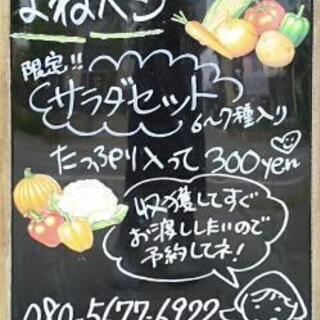 よねベジ
限定!!
サラダセット
6〜7種入り
たっぷり入って300yen
収獲してすぐ
お渡ししたいので
予約してネ!
080-5677-6922